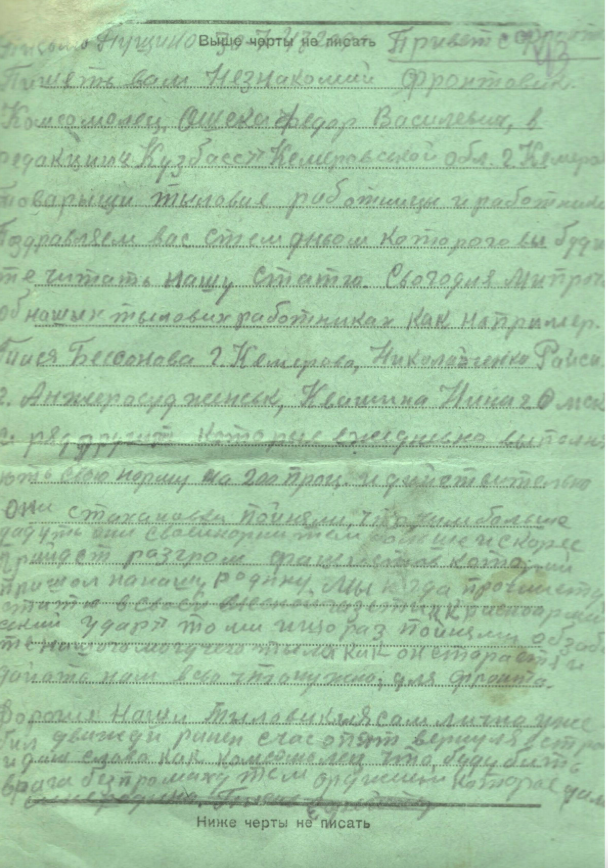 Выше черты не писать Привет с фронта
Пишеть вам Незнакомий фронтовик
Комсомолец, Ощека Федор Василевич, в
редакцию Кузбасс Кемеровской обл. г. Кемеро
товарыщи тыловие работницы и работники
Поздравляем вас стем дньом которого вы буди
те читать нашу статю. Сьогодня ми проч
об наших тылових работниках как например.
Тися Бессонова г. Кемерова, Николайченко Раиса
г. Анжеросудженськ, Квашина Нина г Омск
и ряд других которые ежедневно выполн
ють свою норму на 200 проц. и дийствительно
они стахановки пойняли, что чим больше
дадуть они своих норм тем больше и скорее
придет разгром фашистов которий
пришол на нашу родину. Мы когда прочиета
статю в своей газети красноарме
ский удар то ми ищо раз пойняли об забо
те нашого могучего тыла как он старается и
дайоть нам всьо что нужно для фронта.
Дорогие наши тыловики я сам лично уже
бил дважди ранен счас опять вернулся встро
и даю слово как комсомолец что буду бить
врага без промаху тем оружием которое дали
Ниже черты не писать